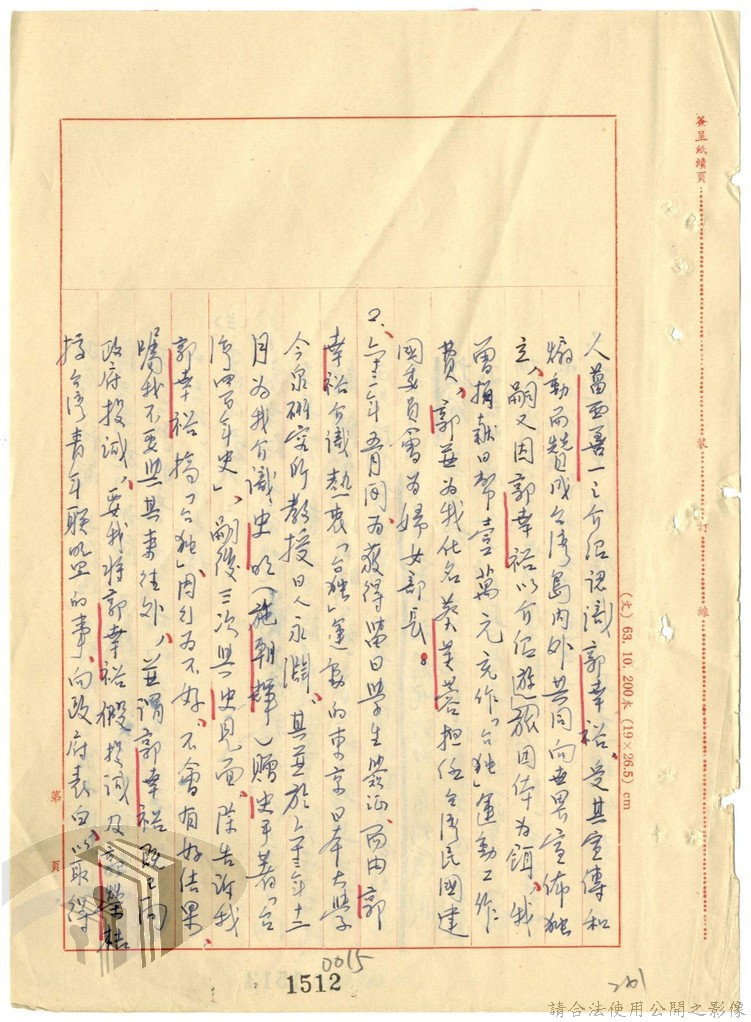 簽呈紙續頁
裝
訂
線
(文) 63. 10. 200本 (19×26.5) cm
人葛西善一之介紹認識郭幸裕、受其宣傳和
煽動而贊成台湾島內外共同向世界宣佈独
立、嗣又因郭幸裕以介紹遊旅团体为餌、我
曾捐献日幣壹萬元充作「台独」運動工作
費、郭並为我化名葵芙蓉担任台湾民國建
國委員會为婦女部長。
2、六十二年五月間为獲得留日學生簽证、而由郭
幸裕介識熱衷「台独」運動的東京日本大學
今泉研究所教授日人永淵、其並於六十三年十二
月为我介識史明(施朝輝)贈史手著「台
湾四百年史」、嗣後三次與史見面、除告訴我
郭幸裕搞「台独」、因行为不好、不會有好结果、
囑我不要與其來往外、並謂郭幸裕既已向
政府投誠、要我將郭幸裕假投誠及郭榮桔
搞台湾青年联盟的事、向政府表白、以取得
第
頁
0015
1512
261
請合法使用公開之影像